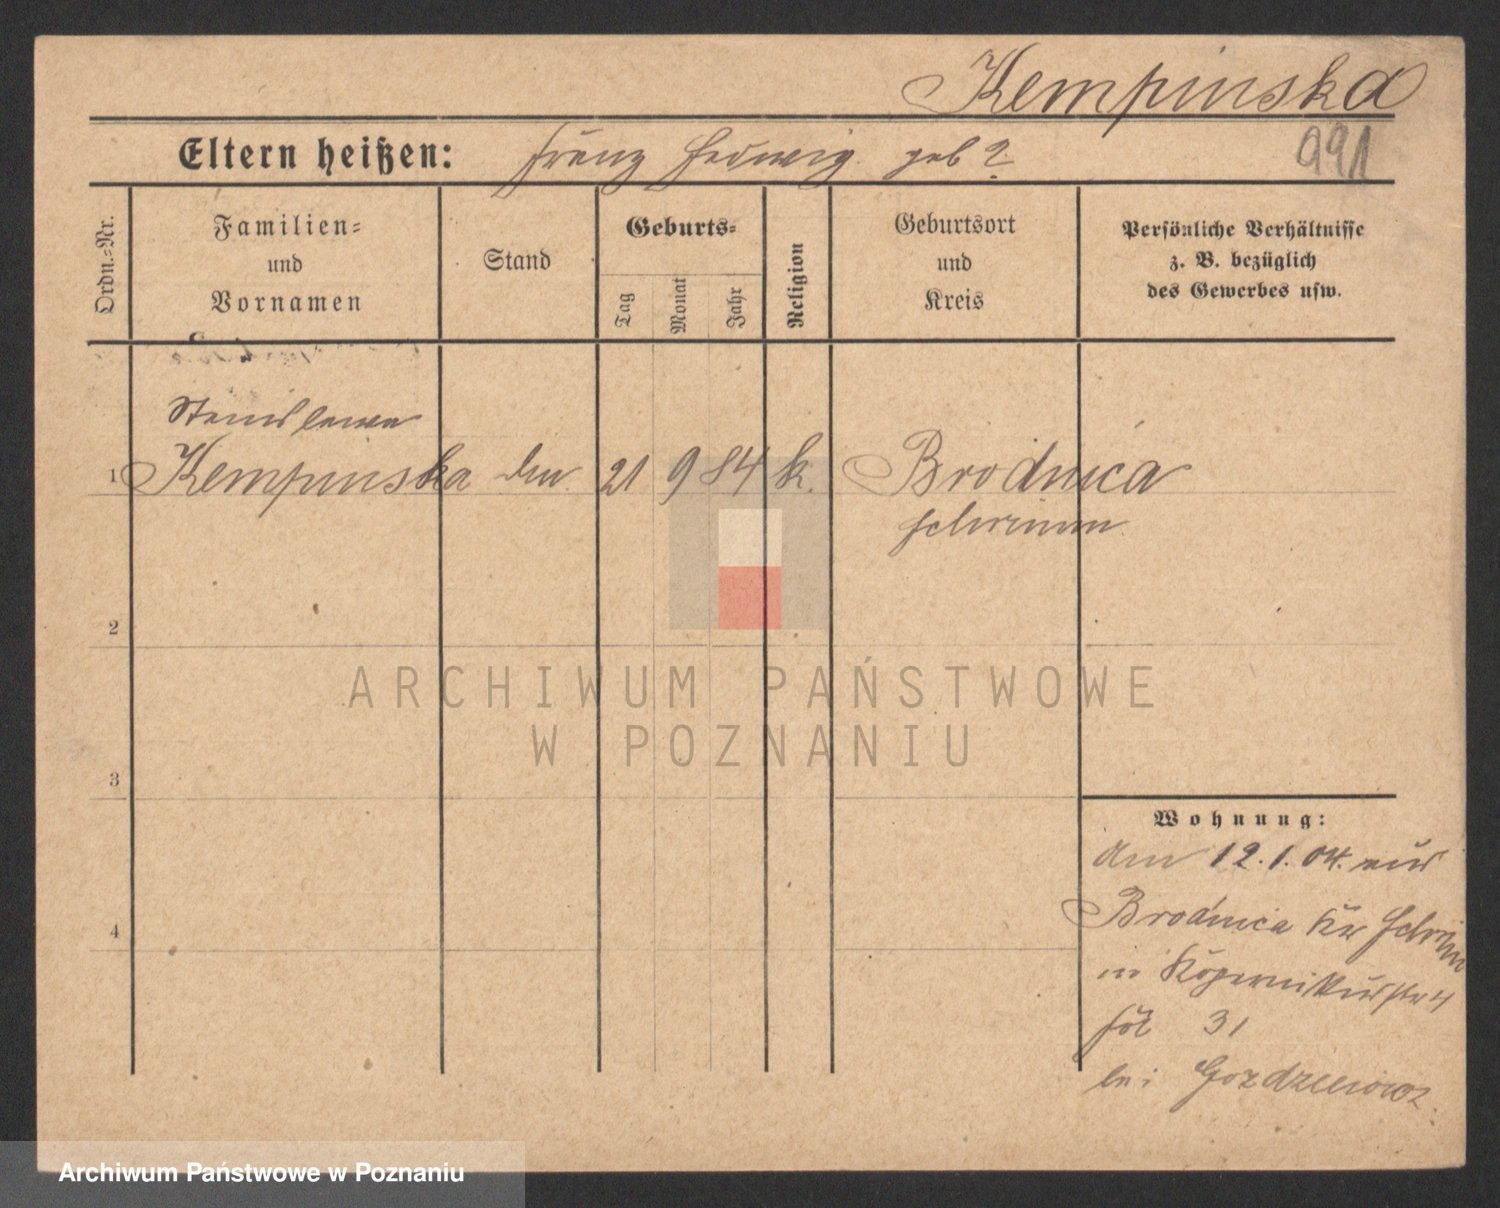 Kempinska
Eltern heißen: Franz Hedwig geb ?
991
Ordn.-Nr.
Familien-
und
Vornamen
Stand
Geburts-
Tag
Monat
Jahr
Religion
Geburtsort
und
Kreis
Persönliche Verhältnisse
z. B. bezüglich
des Gewerbes usw.
Stanislawa
1 Kempinska 21 9 84 k. Brodnica
Schrimm
2
ARCHIWUM PAŃSTWOWE
W POZNANIU
3
Wohnung:
Am 12.1.04. aus
4
Brodnica Kr Schrimm
in Kopernikusstr 4
31
bei
Archiwum Państwowe w Poznaniu